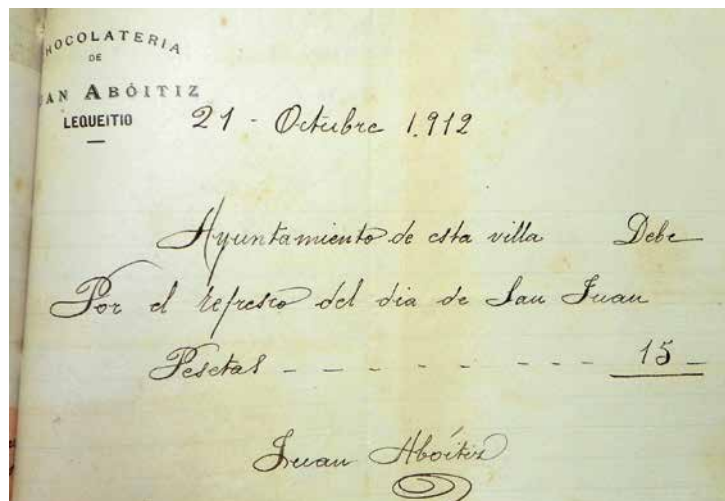 HOCOLATERIA
DE
UAN ABÓITIZ
LEQUEITIO
21 - Octubre 1.912
Ayuntamiento de esta villa Debe
Por el refresco del dia de San Juan
Pesetas - - - - - - - - - 15 -
Juan Abóitiz